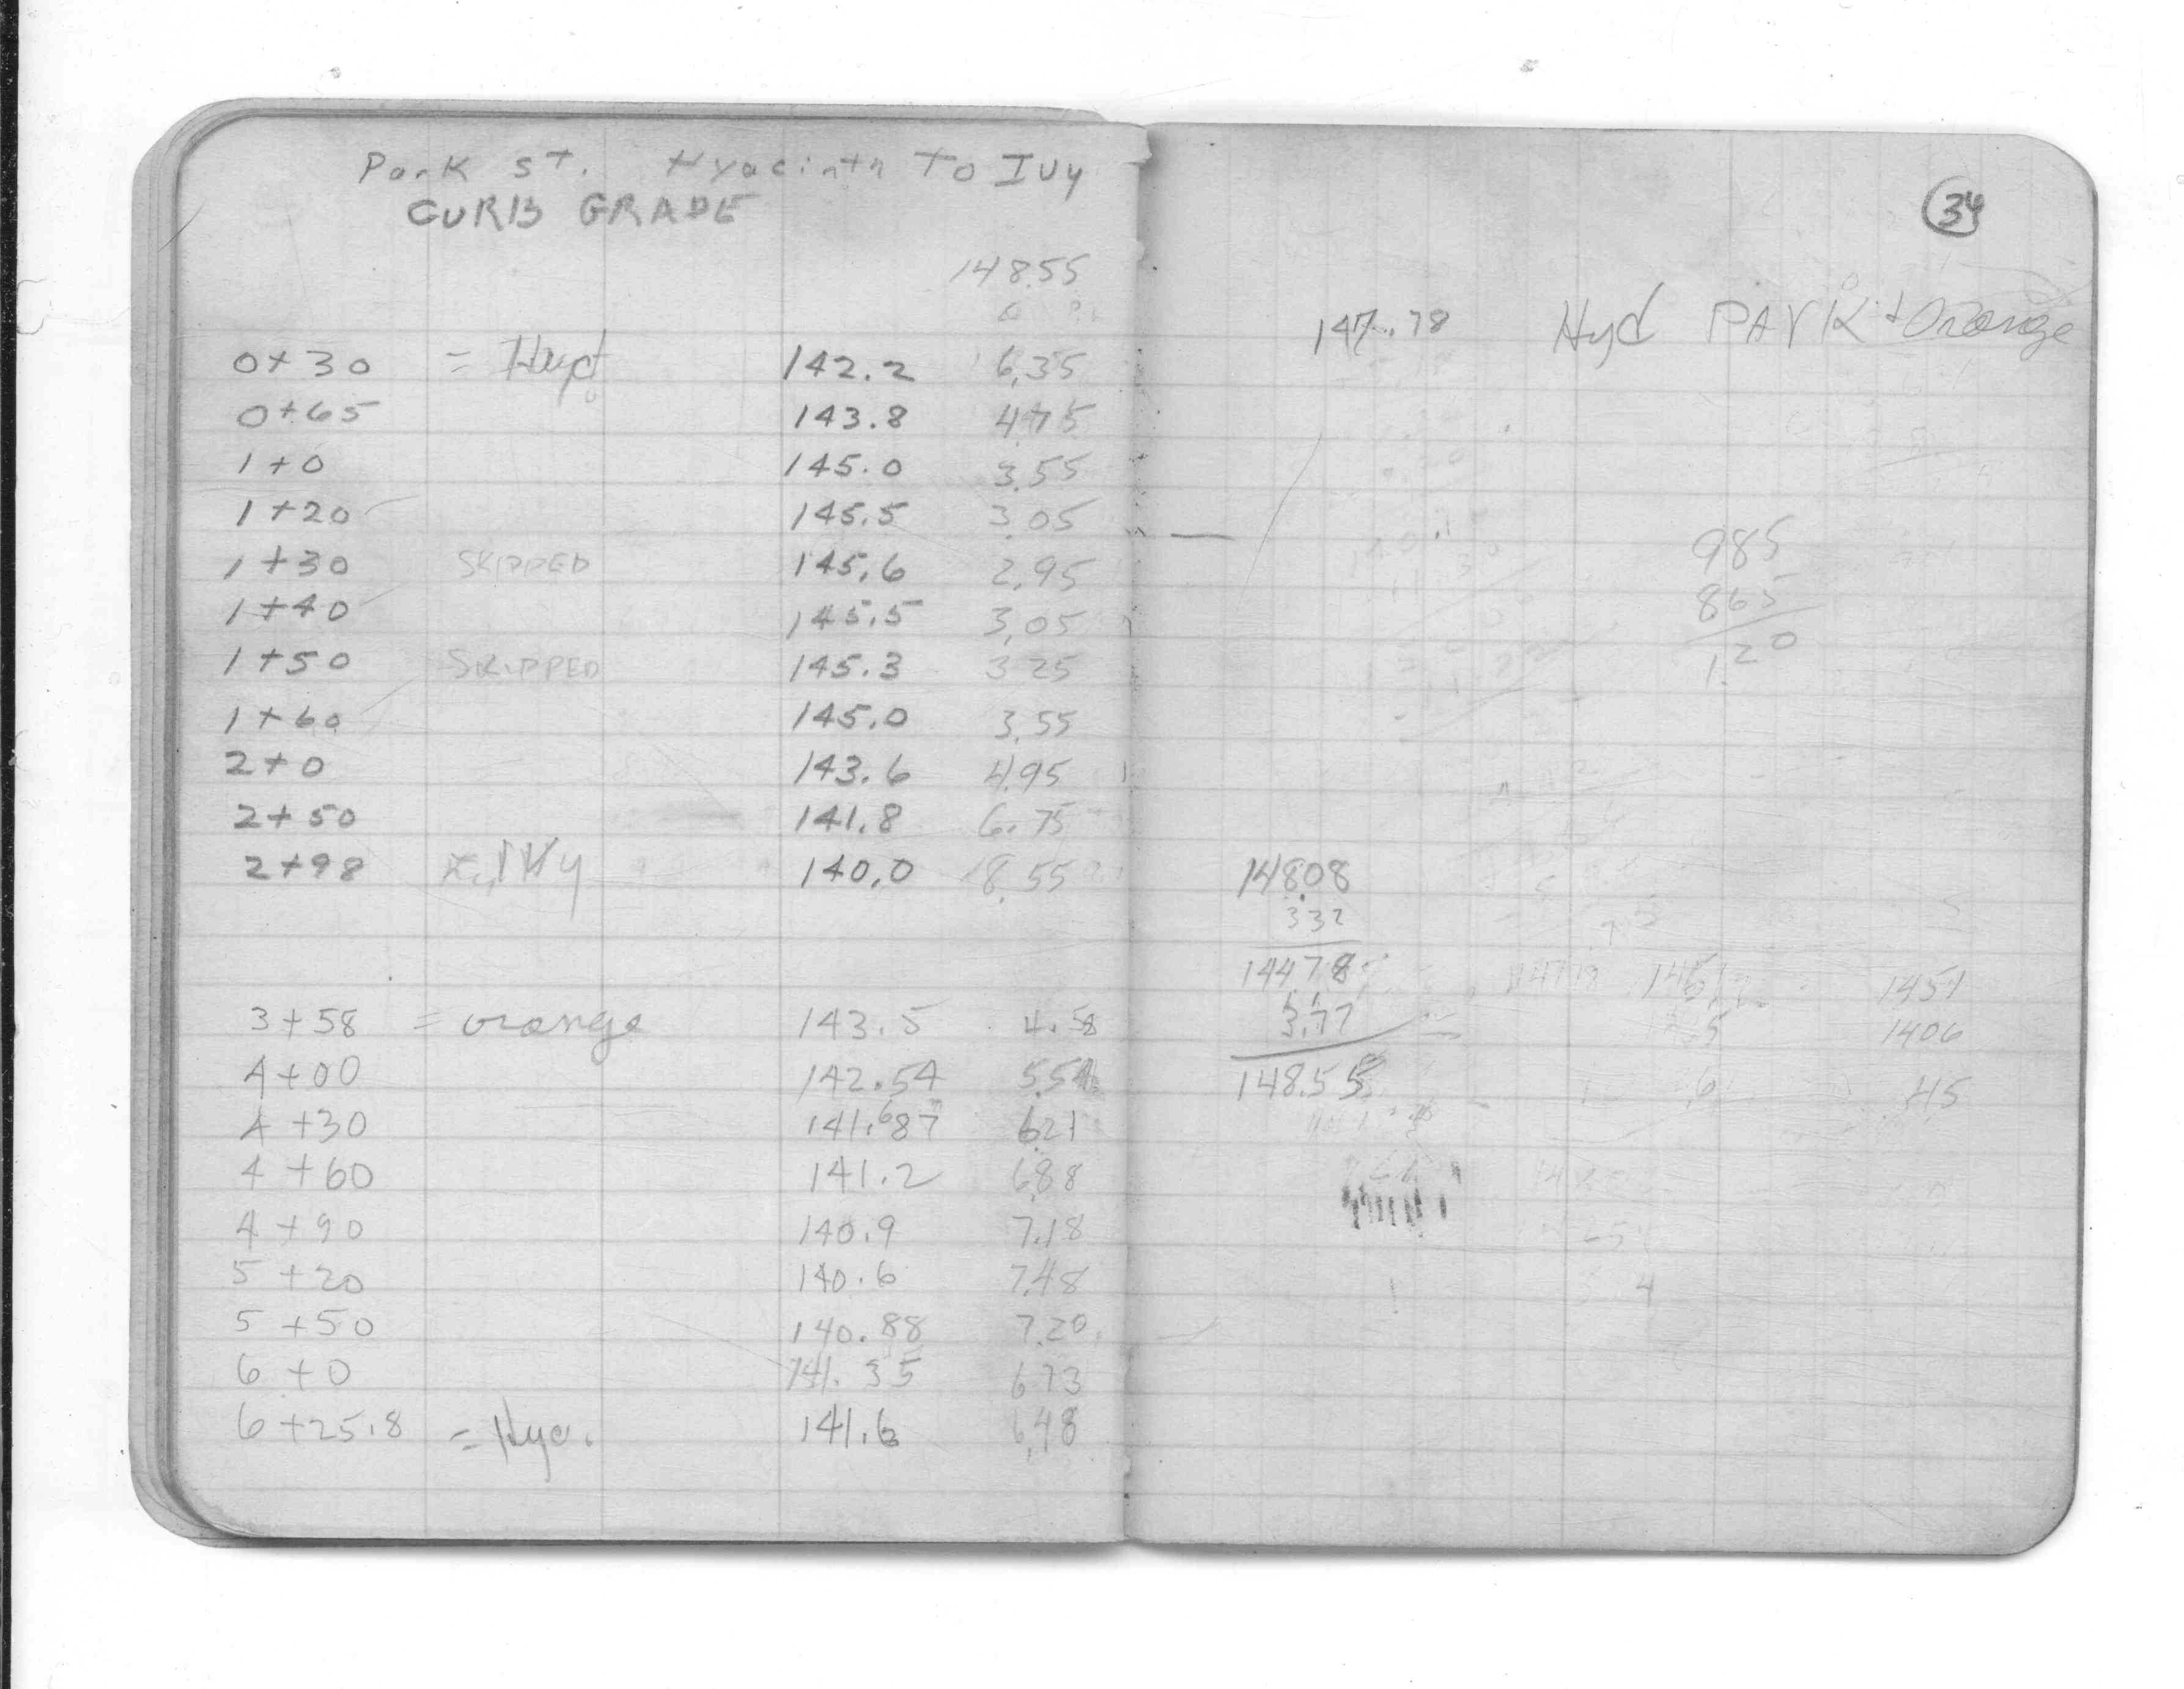 Park St. Hyacinth To Ivy
CURB GRADE
148.55
0+30 = Hyd 142.2 6.35
0+65 143.8 4.75
1+0 145.0 3.55
1+20 145.5 3.05
1+30 SKIPPED 145.6 2.95
1+40 145.5 3.05
1+50 SKIPPED 145.3 3.25
1+60 145.0 3.55
2+0 143.6 4.95
2+50 141.8 6.75
2+98 IVy 140.0 8.55
3+58 = orange 143.5 4.58
4+00 142.54 5.54
4+30 141.87 6.21
4+60 141.2 6.88
4+90 140.9 7.18
5+20 140.6 7.48
5+50 140.88 7.20
6+0 141.35 6.73
6+25.8 = Hya. 141.6 6.48
34
147.78 Hyd PArK + Orange
985
865
1.20
148.08
332
144.78
3.77
148.55
1451
1406
45